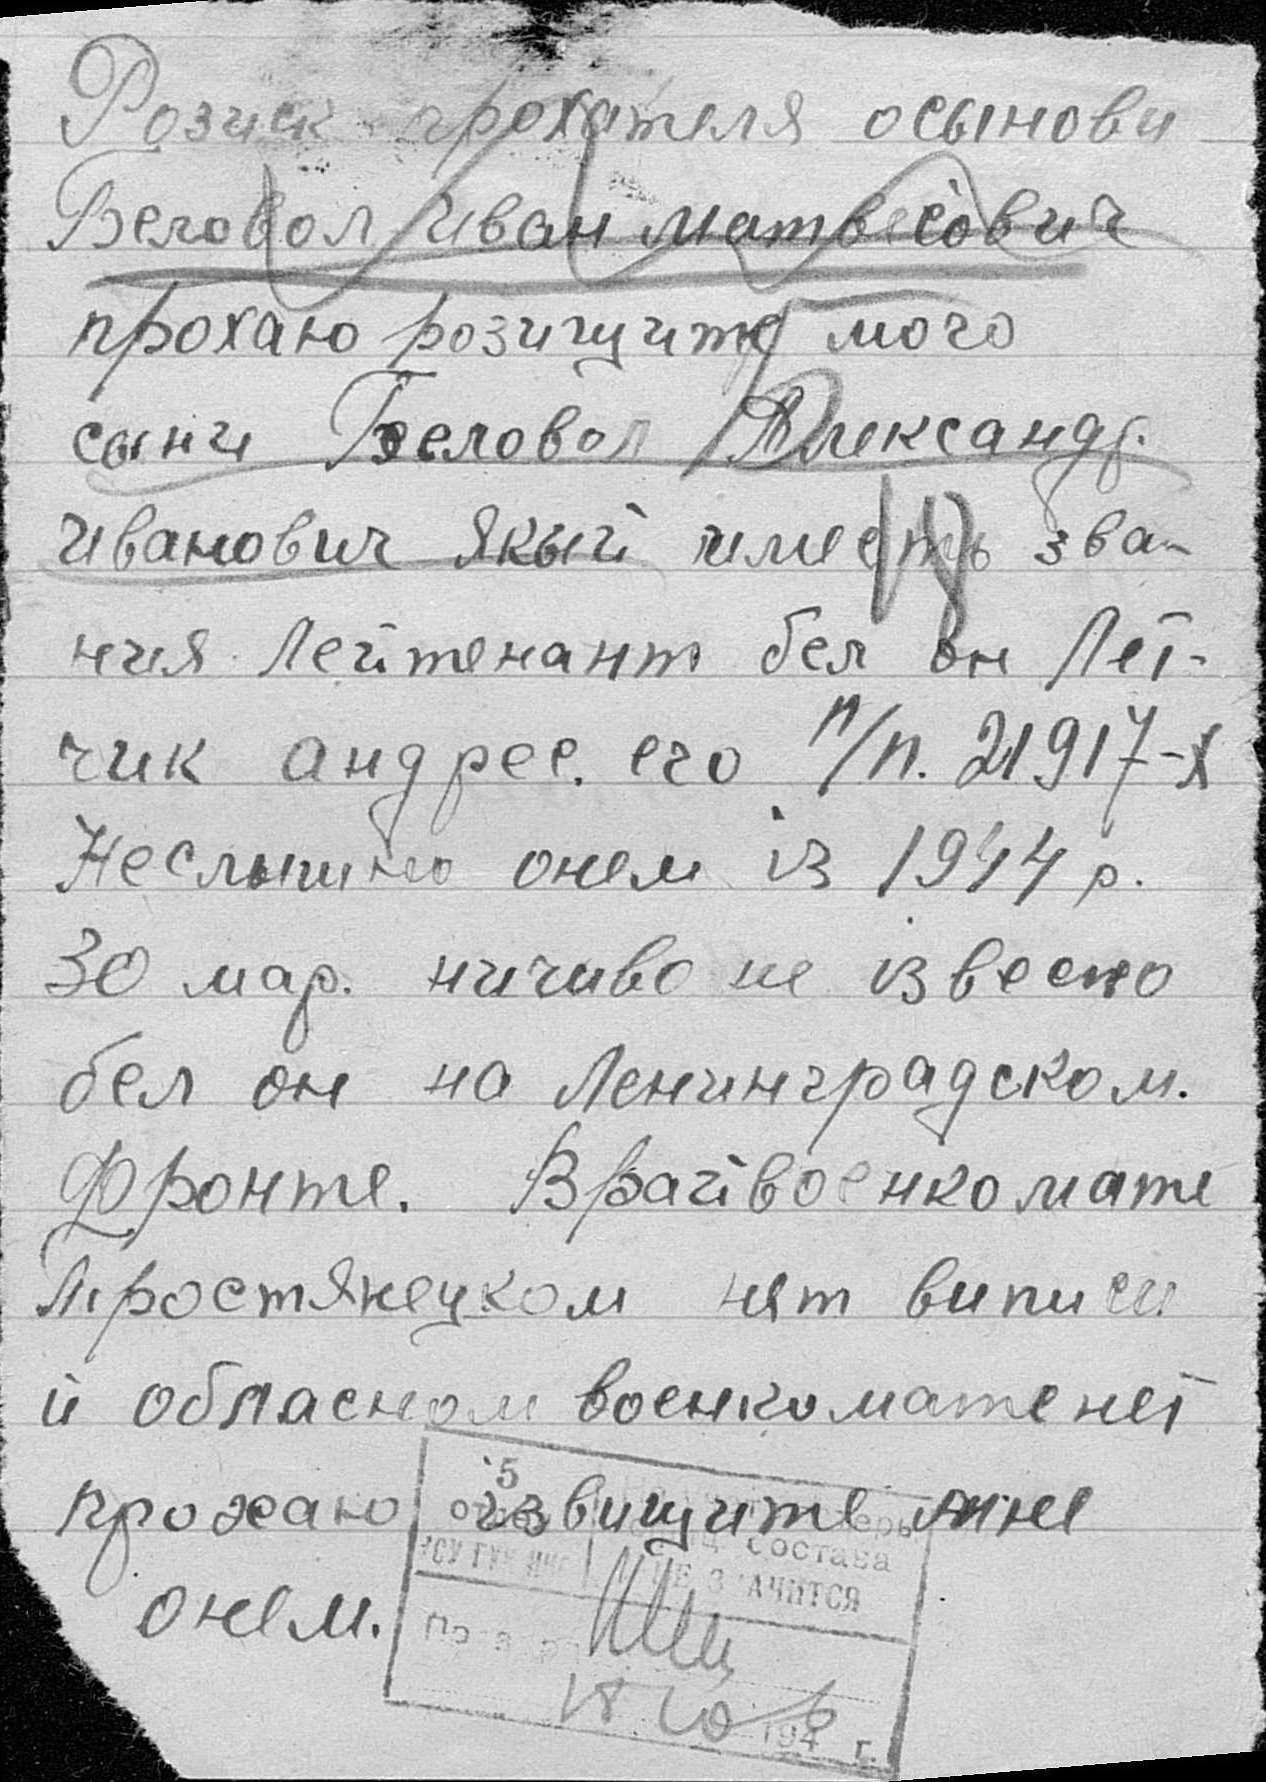 Розиск прохателя осынови
Беловол Иван Матвеевич
прохаю розищите мого
сыни Беловол Александр.
Иванович якый имееть зва-
ния Лейтенант бел он Лет-
чик андрес. его п/п. 21917-Х
Неслышно онем із 1944 р.
30 мар. ничиво не ізвесно
бел он на Ленинградском.
Фронте. Врайвоенкомате
Тростянецком нят виписи
и обласном военкомате нет
прохаю извищите мне
онем.
5
состава
НЕ ЗНАЧИТСЯ
18 10
194 6 г.